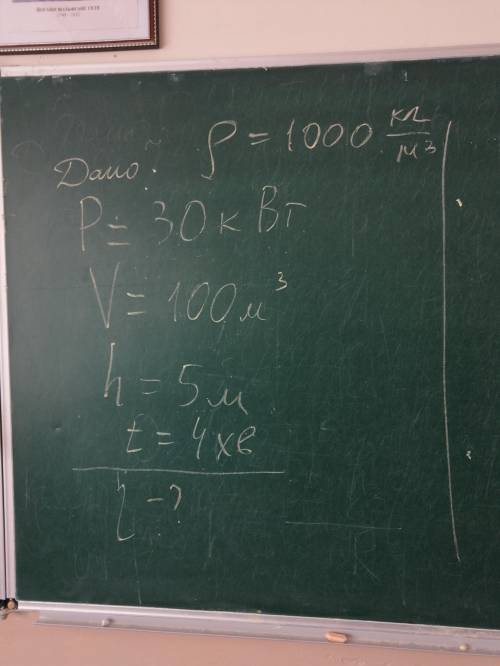 Дано:
ρ = 1000 кг/м³
P = 30 кВт
V = 100 м³
h = 5 м
t = 4 хв
η - ?
R